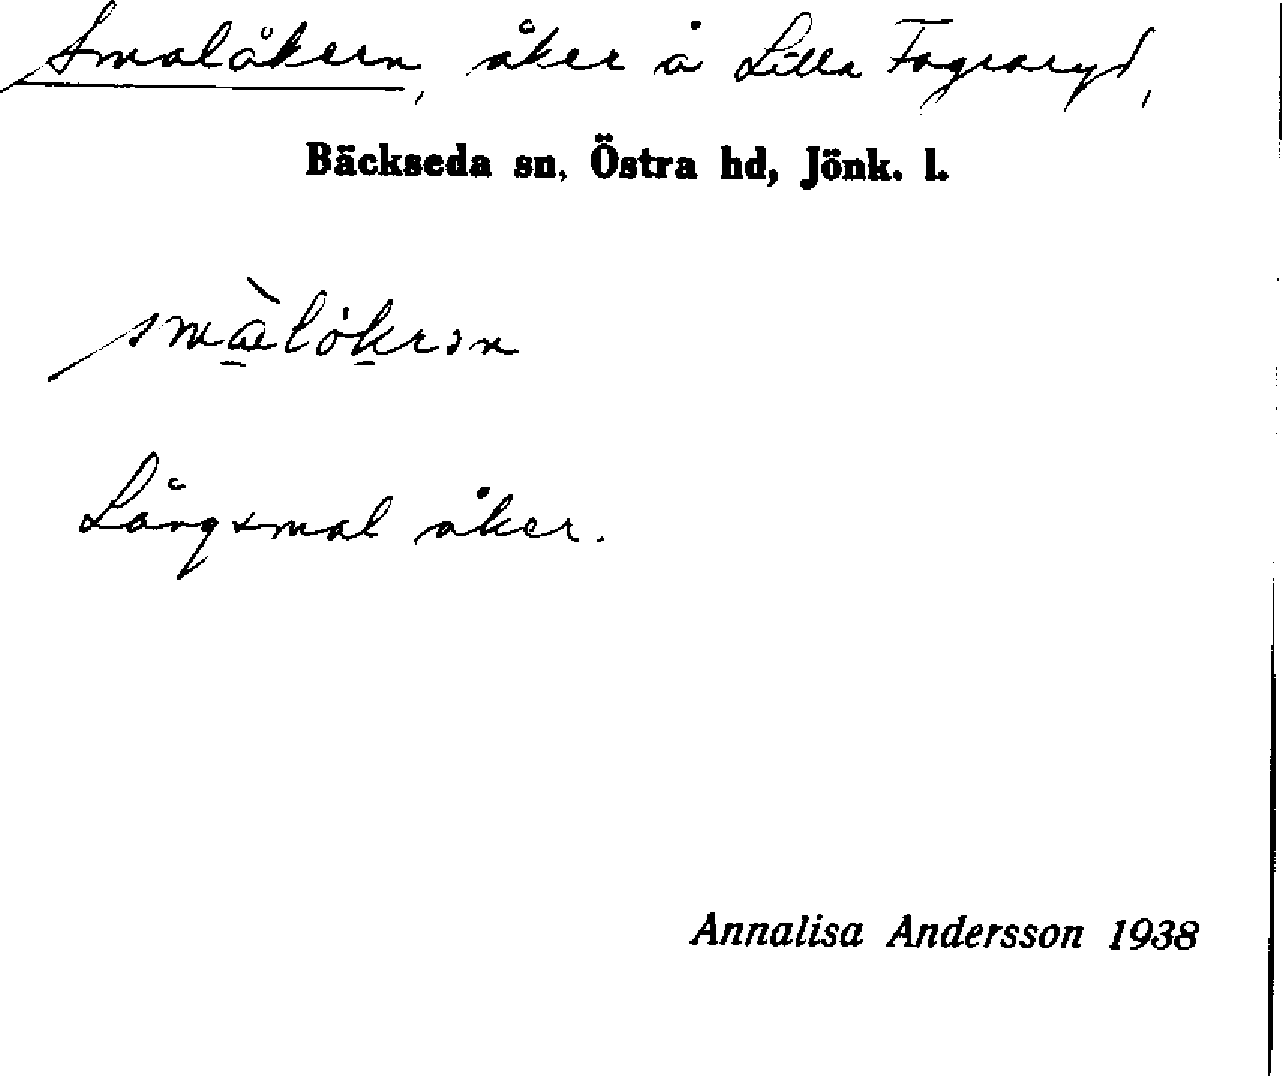 Smalåkern, åker å Lilla Fagraryd,
Bäckseda sn, Östra hd, Jönk. l.
smàlókrən
Långsmal åker.
Annalisa Andersson 1938